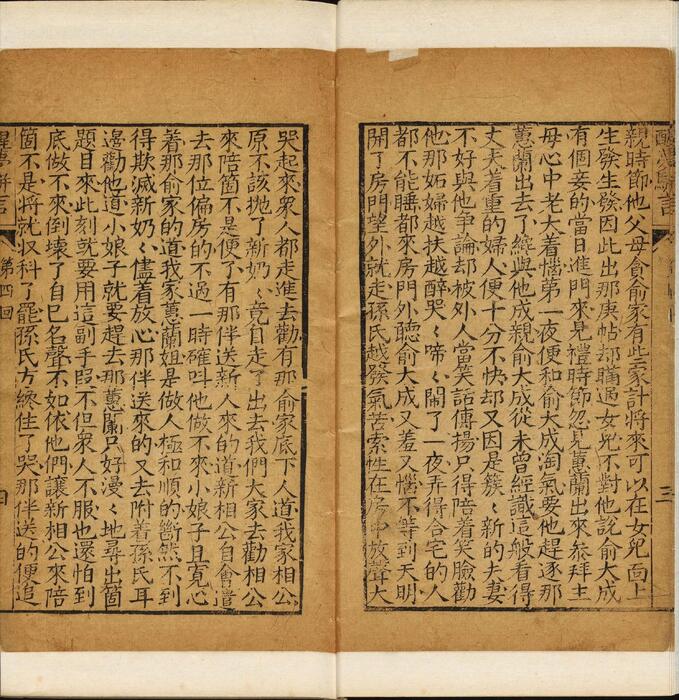 親時節他父母貪俞家有些家計將來可以在女兒面上
生發生發因此出那庚帖却瞞過女兒不對他說俞大成
有個妾的當日進門來見禮時節忽見蕙蘭出來叅拜主
母心中老大着惱第一夜便和俞大成淘氣要他趕逐那
蕙蘭出去了纔與他成親俞大成從未曾經識這般看得
丈夫着重的婦人便十分不快却又因是簇〻新的夫妻
不好與他爭論却被外人當笑話傳揚只得陪着笑臉勸
他那妬婦越扶越醉哭〻啼〻鬧了一夜弄得合宅的人
都不能睡都來房門外聽俞大成又羞又惱不等到天明
開了房門望外就走孫氏越發氣苦索性在房中放聲大
哭起來衆人都走進去勸有那俞家底下人道我家相公
原不該拋了新奶〻竟自走了出去我們大家去勸相公
來陪箇不是便了有那伴送新人來的道新相公自會遣
去那位偏房的不過一時確呌他做不來小娘子且寬心
着那俞家的道我家蕙蘭姐是做人極和順的斷然不到
得欺滅新奶〻儘着放心那伴送來的又去附着孫氏耳
邊勸他道小娘子就要趕去那蕙蘭只好漫〻地尋出箇
題目來此刻就要用這副手段不但衆人不服也還怕到
底做不來倒壞了自己名聲不如依他們讓新相公來陪
箇不是將就収科了罷孫氏方纔住了哭那伴送的便追
醒夢駢言
第四回
四
三